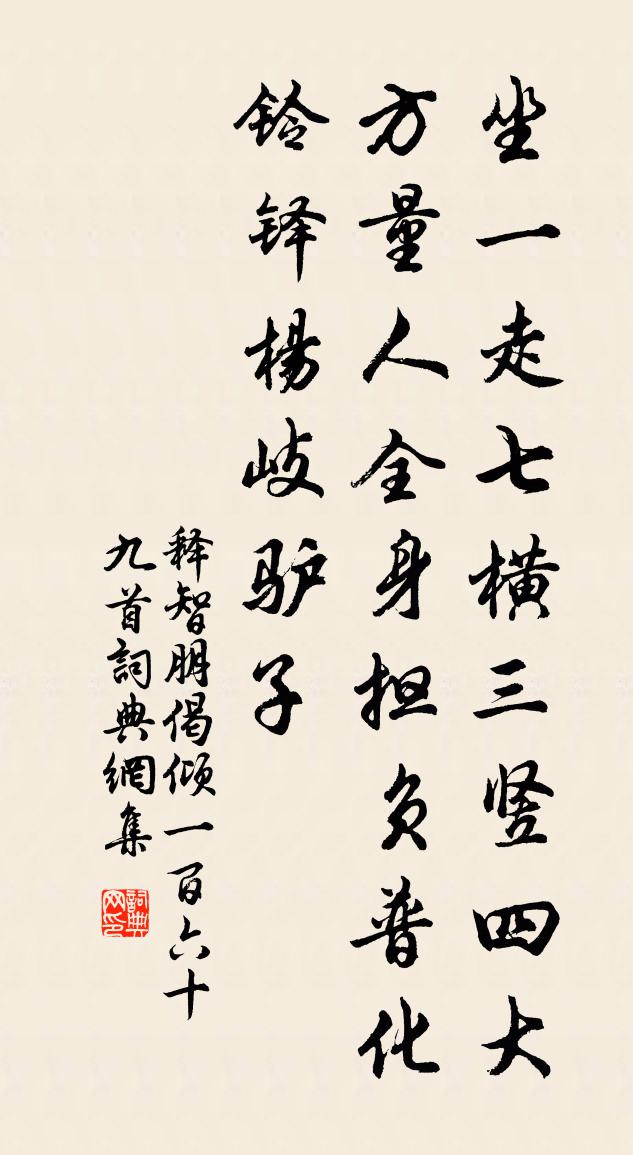 坐一走七横三竖四大
方量人全身担负普化
铃铎杨岐驴子
释智朋偈倾一百六十
九首詞典網集
詞典网印